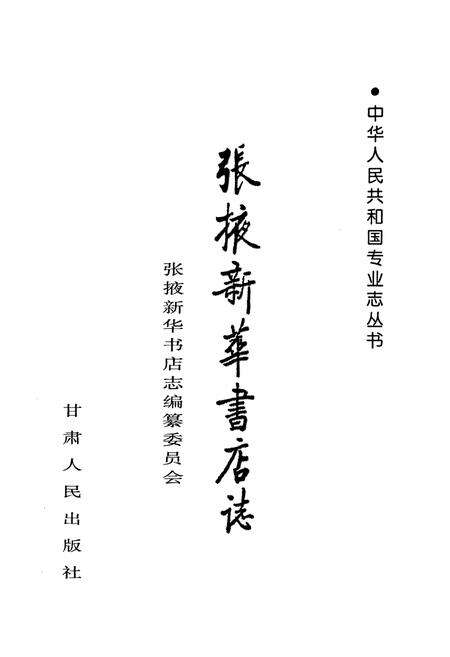 •中华人民共和国专业志丛书
張掖新華書店誌
张掖新华书店志编纂委员会
甘肃人民出版社